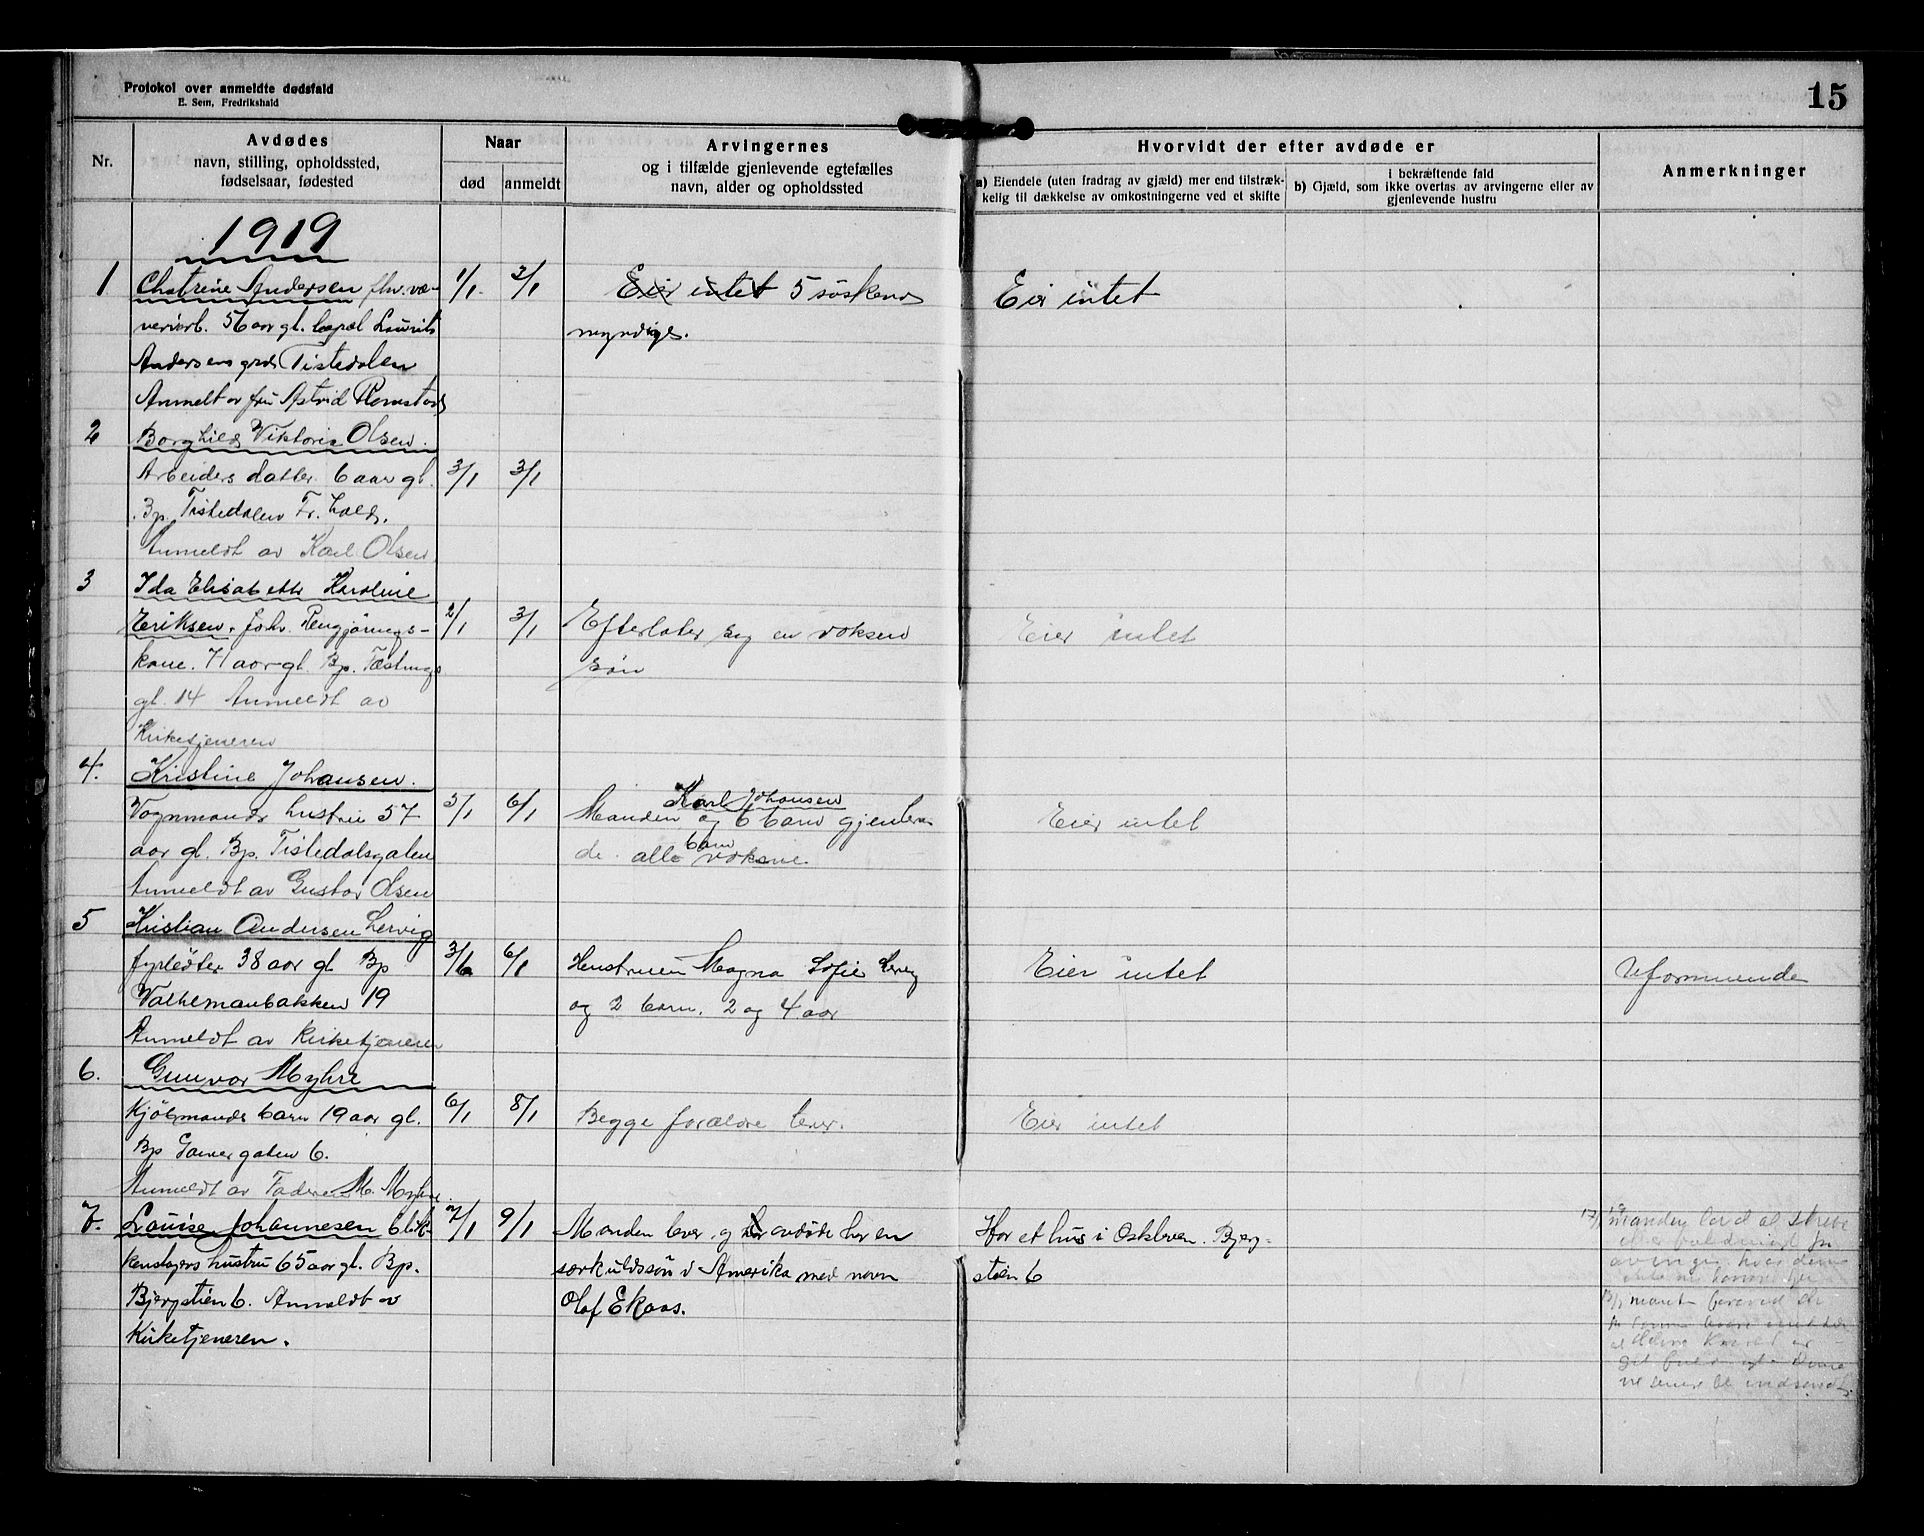 Protokol over anmeldte dødsfald
E. Sem, Fredrikshald
15
Nr.
Avdødes
navn, stilling, opholdssted,
fødselsaar, fødested
Naar
død
anmeldt
Arvingernes
og i tilfælde gjenlevende egtefælles
navn, alder og opholdssted
Hvorvidt der efter avdøde er
a) Eiendele (uten fradrag av gjæld) mer end tilstræk-
kelig til dækkelse av omkostningerne ved et skifte
i bekræftende fald
b) Gjæld, som ikke overtas av arvingerne eller av
gjenlevende hustru
Anmerkninger
1919
1 Chatrine Andersen fhv. væ- 1/1 3/1 Eier intet 5 søskend Eier intet
veriarb. 56 aar gl. Laurits myndige.
Andersens Tistedalen
Anmelt av fru Astrid
2 Borghild Viktoria Olsen.
Arbeiders datter 6 aar gl. 3/1 3/1
Bp. Tistedalen Fr.hald.
Anmeldt av Karl Olsen
3 Ida Elisabeth Karoline
Eriksen. fhv. Rengjørings- 2/1 3/1 Efterlater seg en voksen Eier intet
kone. 71 aar gl. Bp. Fæstnings søn
gt. 14 Anmeldt av
Kirketjeneren
4. Kristine Johansen.
Karl Johansen
Vognmands hustru 57 5/1 6/1 Manden og 6 barn gjenleven- Eier intet
aar gl. Bp. Tistedalsgaten de. alle barn voksne.
Anmeldt av Gustav Olsen
5 Kristian Andersen Lervig
fyrbøter 38 aar gl Bp 6/1 Hustruen Magna Sofie Lervig Eier intet Uformuende
Valhemanbakken 19 og 2 barn. 2 og 4 aar
Anmeldt av Kirketjeneren
6. Gunvor Myhre
Kjøbmands barn 19 aar gl. 6/1 8/1 Begge forældre lever. Eier intet
Bp 6.
Anmeldt av Faderen M. Myhre.
7. Louise Johannesen blik- 7/1 9/1 Manden lever og avdøde har en Har et hus i Oskleven. Bjerg-
kenslagers hustru 65 aar gl. Bp. særkuldssøn i Amerika med navn stien 6
Bjergstien 6. Anmeldt av Olaf Ekaas.
Kirketjeneren.